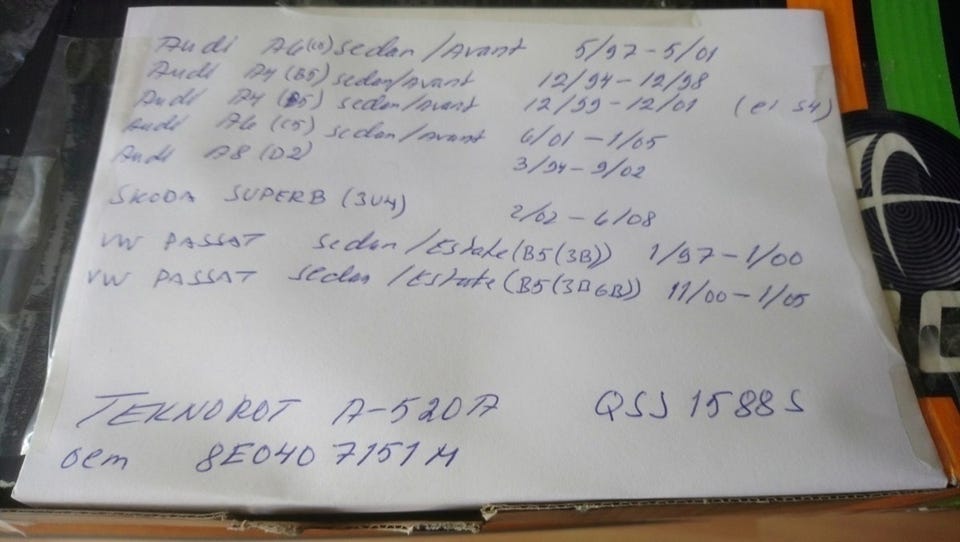 Audi A6(C5) sedan/Avant 5/97-5/01
Audi A4 (B5) sedan/Avant 12/94-12/98
Audi A4 (B5) sedan/Avant 12/99-12/01 (ei S4)
Audi A6 (C5) sedan/Avant 6/01-1/05
Audi A8 (D2) 3/94-9/02
SKODA SUPERB (3U4) 2/02-6/08
VW PASSAT sedan/Estate (B5(3B)) 1/97-1/00
VW PASSAT sedan/Estate (B5(3B6B)) 11/00-1/05
TEKNOROT A-520A QSJ1588S
oem 8E0407151M